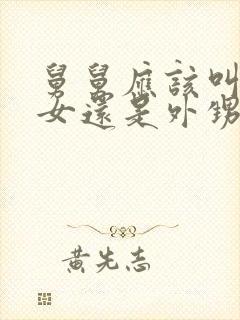 舅舅應該叫
女還是外甥
黃先志